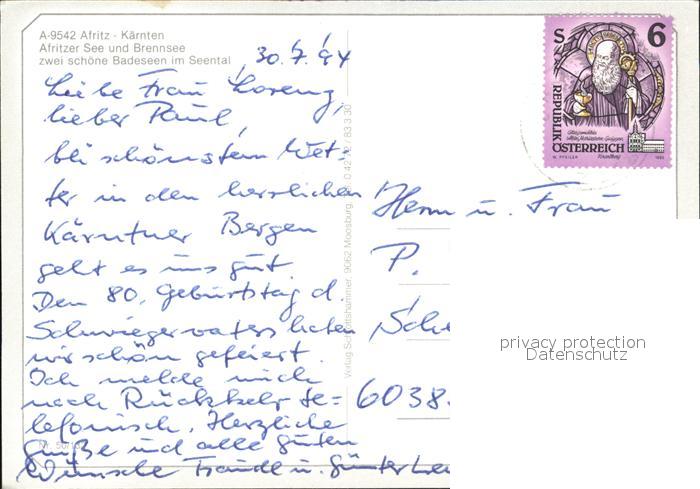 A-9542 Afritz - Kärnten
Afritzer See und Brennsee
zwei schöne Badeseen im Seental
30.7.94
Liebe Frau Lorenz,
lieber Paul,
bei schönstem Wet-
ter in den herrlichen
Kärntner Bergen
geht es uns gut.
Den 80. Geburtstag d.
Schwiegervaters haben
wir schön gefeiert.
Ich melde mich
nach Rückkehr te-
lefonisch. Herzliche
Grüße und alle guten
Wünsche Traudl u. Günter
S 6
REPUBLIK
ÖSTERREICH
Herrn u. Frau
P.
6038
privacy protection
Datenschutz